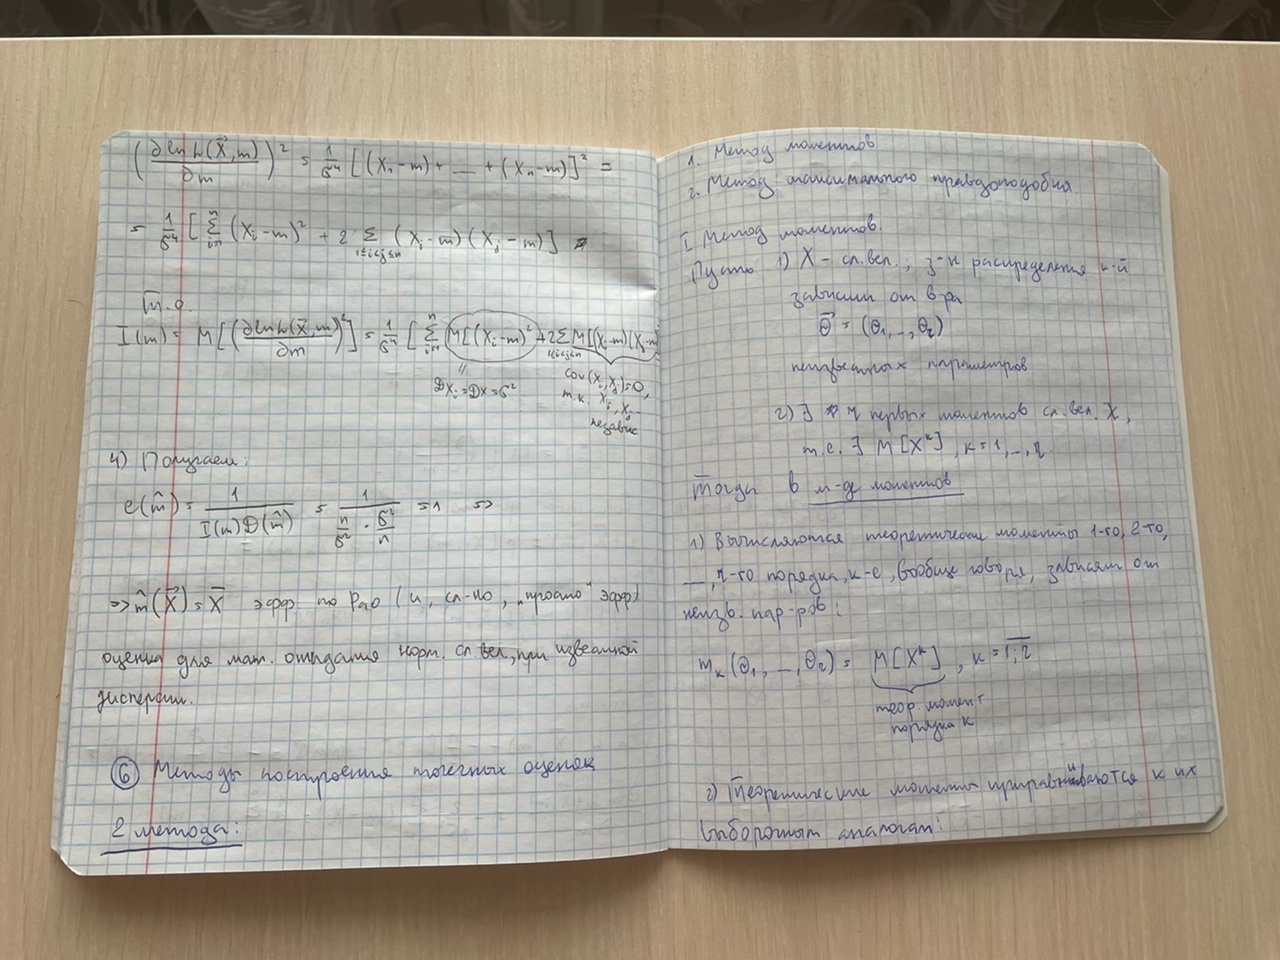 (∂ ln L(X⃗,m) / ∂m)² = 1/σ⁴ [(X₁-m) + ... + (Xₙ-m)]² =
= 1/σ⁴ [∑ᵢ₌₁ⁿ (Xᵢ-m)² + 2 ∑_{1≤i<j≤n} (Xᵢ-m)(Xⱼ-m)]
Т.о.
I(m) = M[(∂ ln L(X⃗,m) / ∂m)²] = 1/σ⁴ [∑ᵢ₌₁ⁿ M[(Xᵢ-m)²] + 2∑_{1≤i<j≤n} M[(Xᵢ-m)(Xⱼ-m)
DXᵢ = DX = σ²
cov(Xᵢ, Xⱼ) = 0,
т.к. Xᵢ, Xⱼ -
независ
4) Получаем:
e(m̂) = 1 / (I(m)D(m̂)) = 1 / (n/σ² · σ²/n) = 1 =>
=> m̂(X⃗) = X̅ эфф. по Рао (и, сл-но, „просто" эфф)
оценка для мат. ожидания норм. сл. вел., при известной
дисперсии.
⑥ Методы построения точечных оценок
2 метода:
1. Метод моментов
2. Метод максимального правдоподобия
I Метод моментов.
Пусть 1) X – сл. вел.; з-н распределения к-й
зависит от в-ра
θ⃗ = (θ₁,...,θᵣ)
неизвестных параметров
2) ∃ r первых моментов сл. вел. X,
т.е. ∃ M[Xᵏ], k=1,...,r.
Тогда в м-де моментов
1) Вычисляются теоретические моменты 1-го, 2-го,
..., r-го порядка, к-е, вообще говоря, зависят от
неизв. пар-ров:
mₖ(θ₁, ..., θᵣ) = M[Xᵏ], k = 1,r
теор. момент
порядка k
2) Теоретические моменты приравниваются к их
выборочным аналогам: